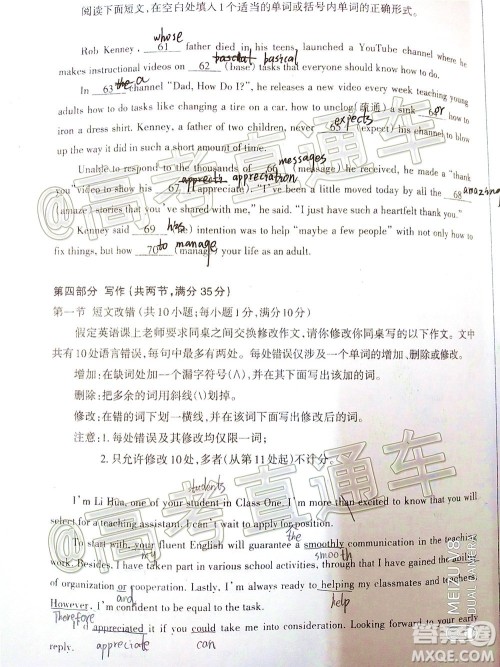 阅读下面短文,在空白处填入1个适当的单词或括号内单词的正确形式。
whose
Rob Kenney, 61 father died in his teens, launched a YouTube channel where he
basical
makes instructional videos on 62 (base) tasks that everyone should know how to do.
the a
In 63 channel "Dad, How Do I?", he releases a new video every week teaching young
adults how to do tasks like changing a tire on a car, how to unclog(疏通) a sink 64 how to
or
expects
iron a dress shirt. Kenney, a father of two children, never 65 (expect) his channel to blow
up the way it did in such a short amount of time.
messages
Unable to respond to the thousands of 66 (message) he received, he made a "thank
appreciation
you" video to show his 67 (appreciate). "I've been a little moved today by all the 68
amazing
(amaze) stories that you've shared with me," he said. "I just have such a heartfelt thank you."
his
Kenney said 69 (he) intention was to help "maybe a few people" with not only how to
to manage
fix things, but how 70 (manage) your life as an adult.
第四部分 写作(共两节,满分35分)
第一节 短文改错(共10小题;每小题1分,满分10分)
假定英语课上老师要求同桌之间交换修改作文,请你修改你同桌写的以下作文。文中
共有10处语言错误,每句中最多有两处。每处错误仅涉及一个单词的增加、删除或修改。
增加:在缺词处加一个漏字符号(∧),并在其下面写出该加的词。
删除:把多余的词用斜线(\)划掉。
修改:在错的词下划一横线,并在该词下面写出修改后的词。
注意:1.每处错误及其修改均仅限一词;
2.只允许修改10处,多者(从第11处起)不计分。
students
I'm Li Hua, one of your student in Class One. I'm more than excited to know that you will
select for a teaching assistant. I can't wait to apply for position.
the
To start with, your fluent English will guarantee a smoothly communication in the teaching
my smooth
work. Besides, I have taken part in various school activities, through that I have got the ability
of organization or cooperation. Lastly, I'm always ready to helping my classmates and teachers.
and help
However, I'm confident to be equal to the task.
Therefore
appreciated it if you could take me into consideration. Looking forward to your early
appreciate can
reply.